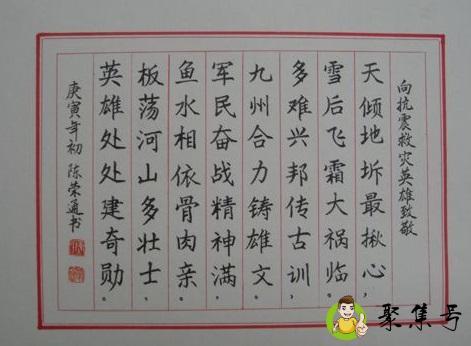 向抗震救灾英雄致敬
天倾地坼最揪心,
雪后飞霜大祸临。
多难兴邦传古训,
九州合力铸雄文。
军民奋战精神满,
鱼水相依骨肉亲。
板荡河山多壮士,
英雄处处建奇勋。
庚寅年初 陈荣通书
聚集号